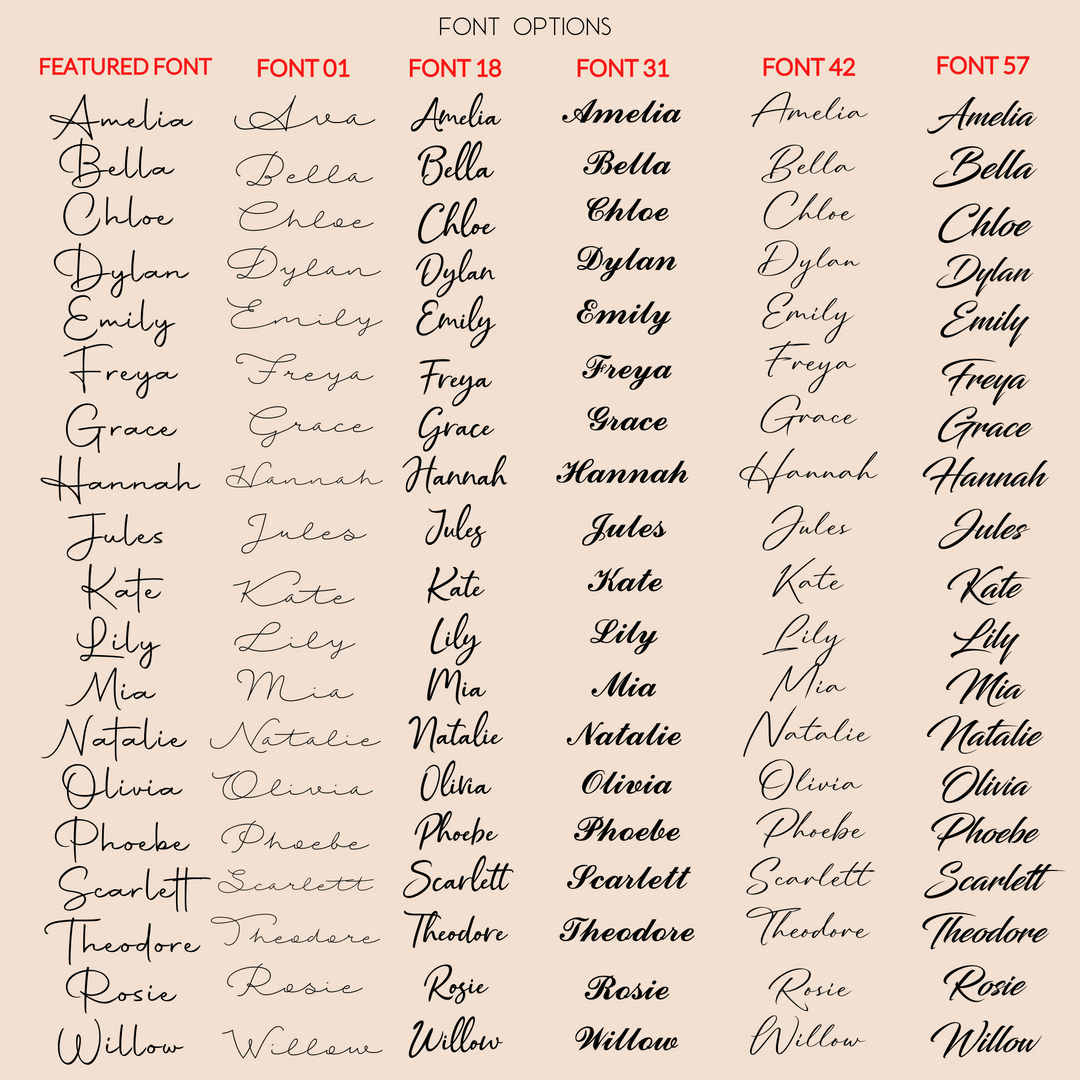 FONT OPTIONS
FEATURED FONT FONT 01 FONT 18 FONT 31 FONT 42 FONT 57
Amelia Ava Amelia Amelia Amelia Amelia
Bella Bella Bella Bella Bella Bella
Chloe Chloe Chloe Chloe Chloe Chloe
Dylan Dylan Dylan Dylan Dylan Dylan
Emily Emily Emily Emily Emily Emily
Freya Freya Freya Freya Freya Freya
Grace Grace Grace Grace Grace Grace
Hannah Hannah Hannah Hannah Hannah Hannah
Jules Jules Jules Jules Jules Jules
Kate Kate Kate Kate Kate Kate
Lily Lily Lily Lily Lily Lily
Mia Mia Mia Mia Mia Mia
Natalie Natalie Natalie Natalie Natalie Natalie
Olivia Olivia Olivia Olivia Olivia Olivia
Phoebe Phoebe Phoebe Phoebe Phoebe Phoebe
Scarlett Scarlett Scarlett Scarlett Scarlett Scarlett
Theodore Theodore Theodore Theodore Theodore Theodore
Rosie Rosie Rosie Rosie Rosie Rosie
Willow Willow Willow Willow Willow Willow